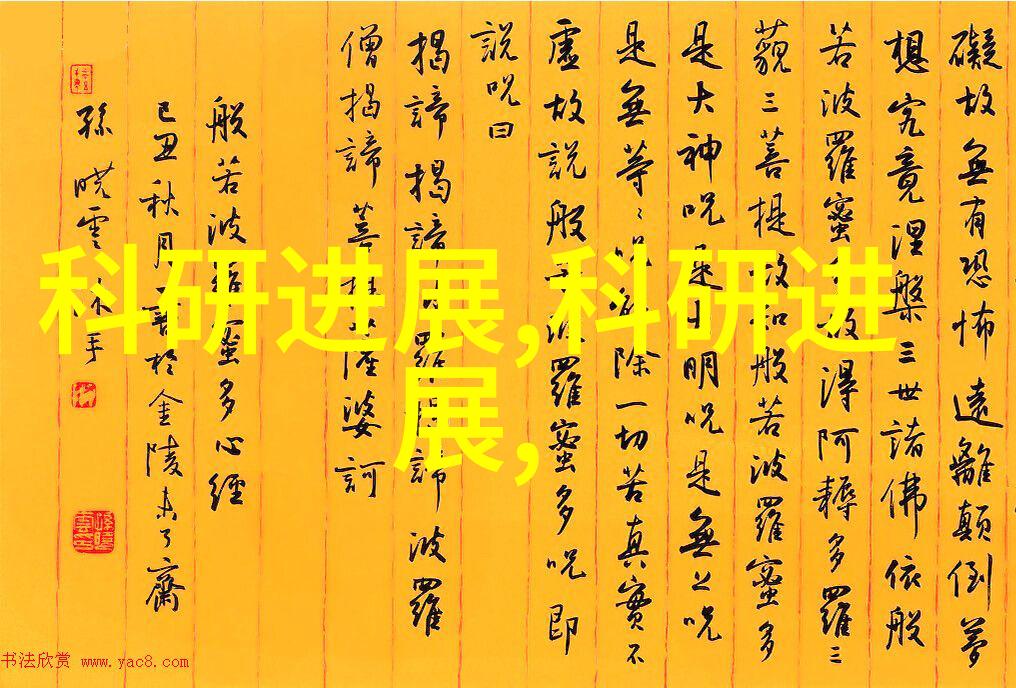 礙故無有恐怖遠離顛倒夢
想究竟涅槃三世諸佛依般
若波羅蜜多故得阿耨多羅三
藐三菩提故知般若波羅蜜多
是大神呪是大明呪是無上呪
是無等々呪能除一切苦真實不
虛故說般若波羅蜜多呪即
說呪曰
揭諦揭諦波羅揭諦波羅
僧揭諦菩提薩婆訶
般若波羅蜜多心經
己丑秋月書於金陵未了齋
孫曉雲
科研进展,科研进
展,
书法欣赏 www.yac8.com